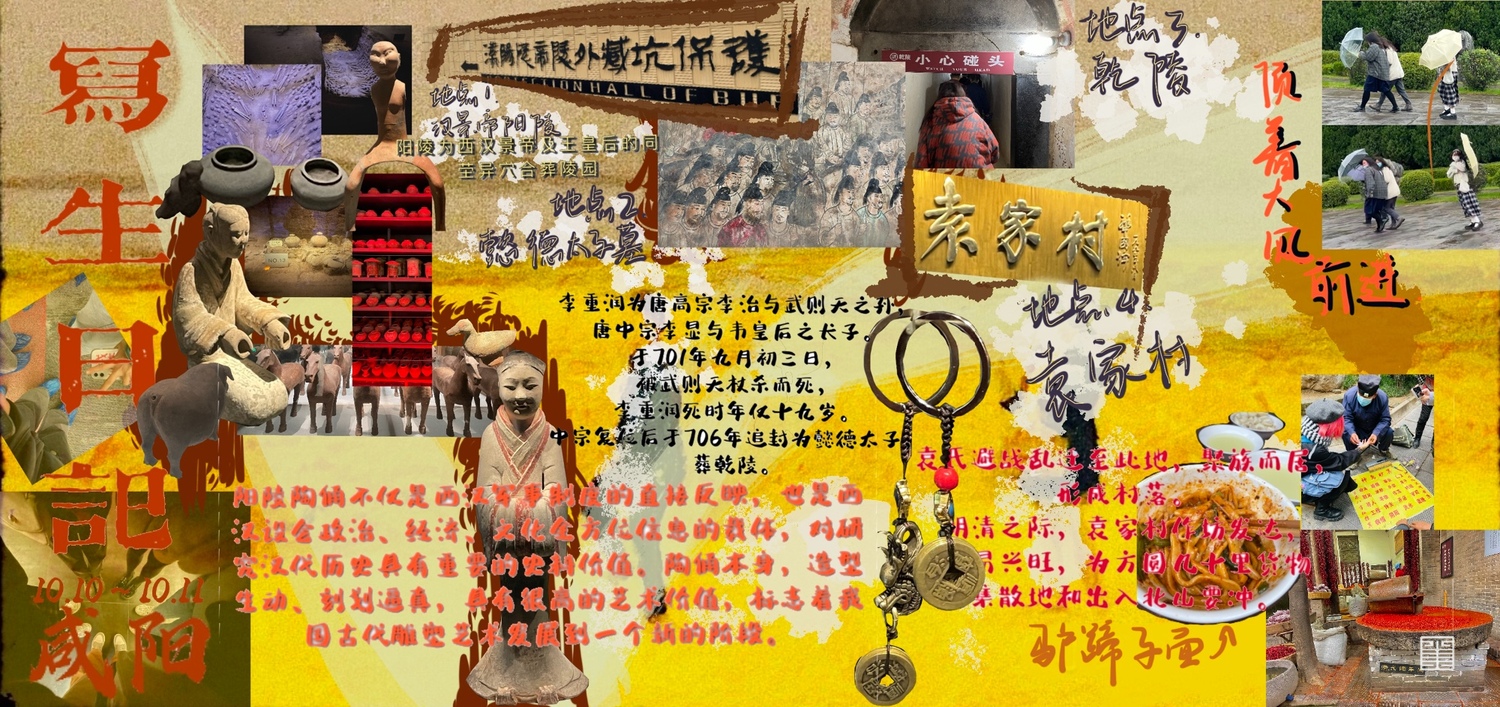 寫生日記
10.10~10.11
咸阳
漢陽陵帝陵外藏坑保護
TION HALL OF BU
地点1
汉景帝阳陵
阳陵为西汉景帝及王皇后的同
茔异穴合葬陵园
地点2
懿德太子墓
李重润为唐高宗李治与武则天之孙，
唐中宗李显与韦皇后之长子。
于701年九月初三日，
被武则天杖杀而死，
李重润死时年仅十九岁。
中宗复位后于706年追封为懿德太子
葬乾陵。
阳陵陶俑不仅是西汉军事制度的直接反映，也是西
汉社会政治、经济、文化全方位信息的载体，对研
究汉代历史具有重要的史料价值。陶俑本身，造型
生动、刻划逼真，具有很高的艺术价值，标志着我
国古代雕塑艺术发展到一个新的阶段。
小心碰头
WATCH YOUR HEAD
地点3.
乾陵
袁家村
地点4
袁家村
袁氏避战乱迁至此地，聚族而居，
形成村落。
明清之际，袁家村作坊发达，
易兴旺，为方圆几十里货物
集散地和出入北山要冲。
驴蹄子面
顶着大风
前进